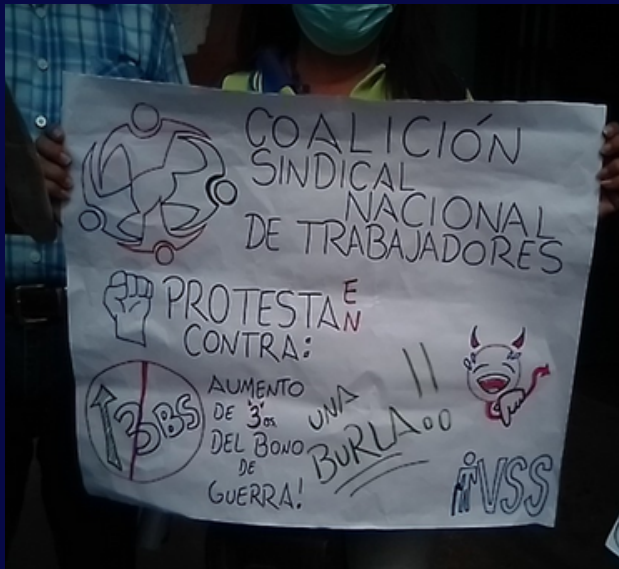 COALICIÓN
SINDICAL
NACIONAL
DE TRABAJADORES
PROTESTA EN
CONTRA:
3BS
AUMENTO
DE "3"
DEL BONO
DE
GUERRA!
UNA
BURLA..!!
IVSS